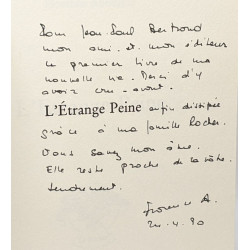 Pour Jean-Paul Bertrand
mon ami et mon éditeur
le premier livre de ma
nouvelle vie. Merci d'y
avoir cru avant.
L'Étrange Peine enfin dissipée
grâce à ma famille Rocher.
Vous savez mon âme.
Elle reste proche de la vôtre.
tendrement.
Florence A.
24.4.90